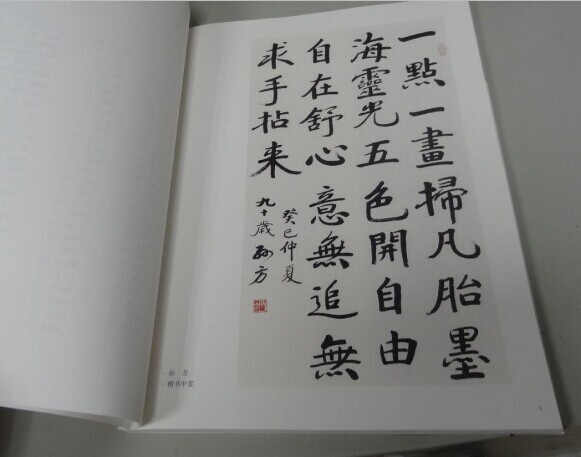 一點一畫掃凡胎墨
海靈光五色開自由
自在舒心意無追無
求手拈来
癸巳仲夏
九十歲孙方
·孙方
·楷书中堂
1